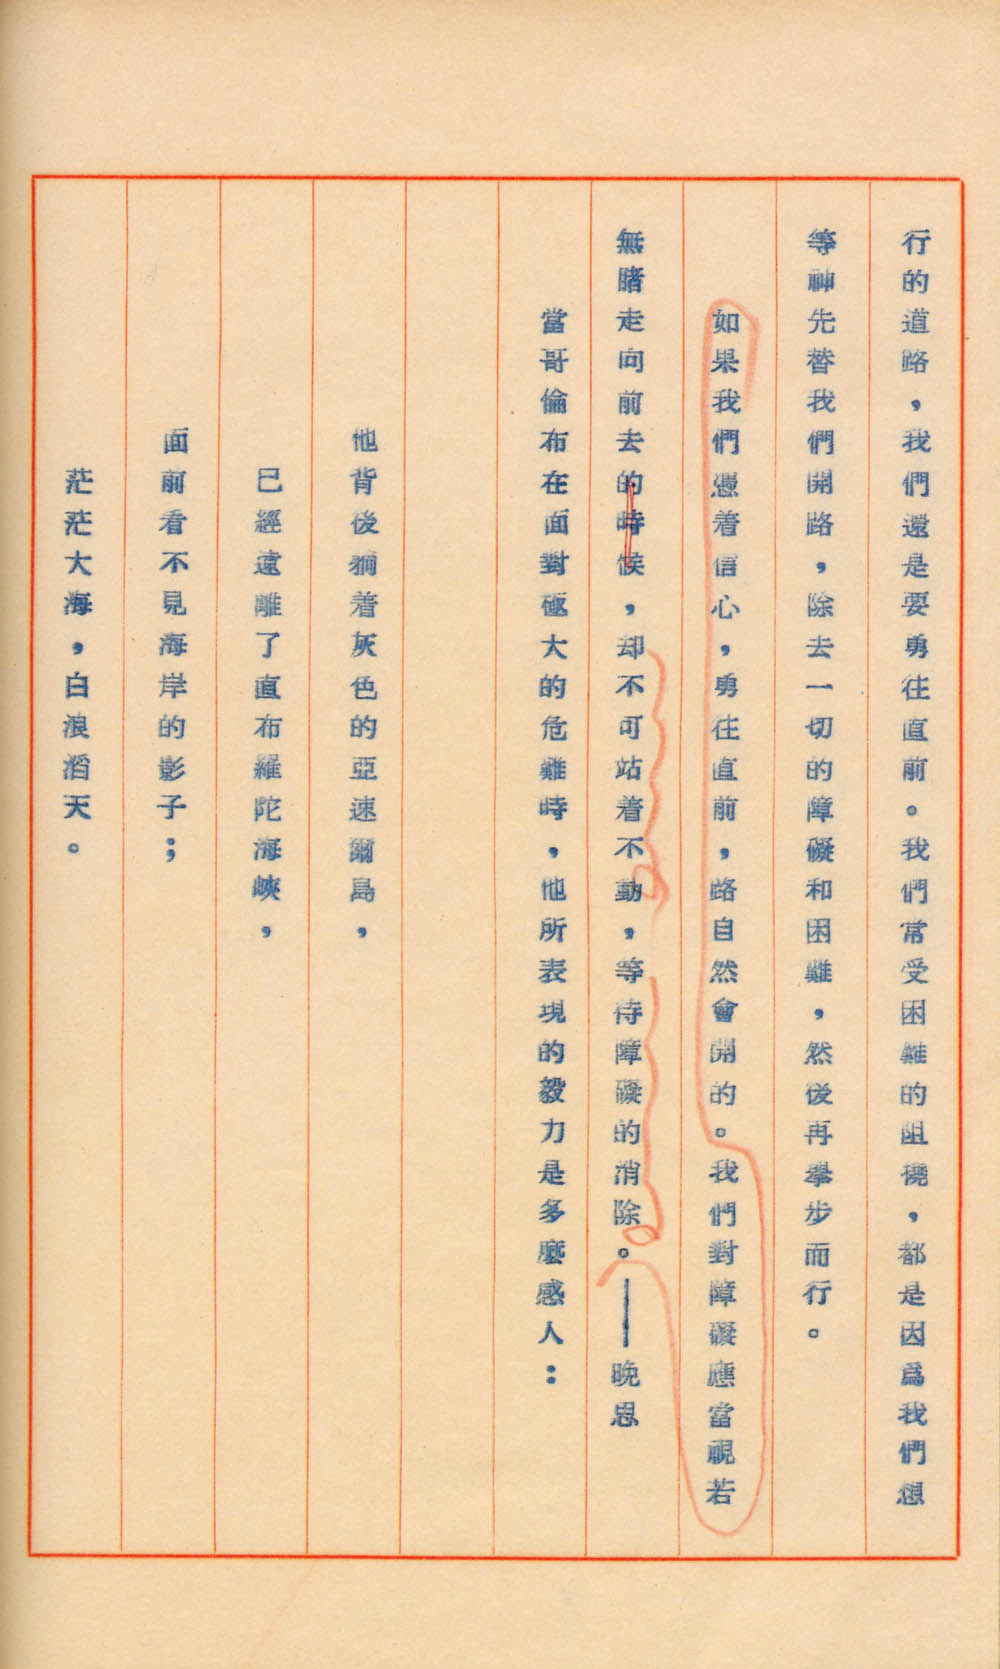 行的道路，我們還是要勇往直前。我們常受困難的阻撓，都是因爲我們想
等神先替我們開路，除去一切的障礙和困難，然後再舉步而行。
如果我們憑着信心，勇往直前，路自然會開的。我們對障礙應當視若
無睹走向前去的時候，却不可站着不動，等待障礙的消除。——晚思
當哥倫布在面對極大的危難時，他所表現的毅力是多麽感人：
他背後躺着灰色的亞速爾島，
已經遠離了直布羅陀海峽，
面前看不見海岸的影子；
茫茫大海，白浪滔天。